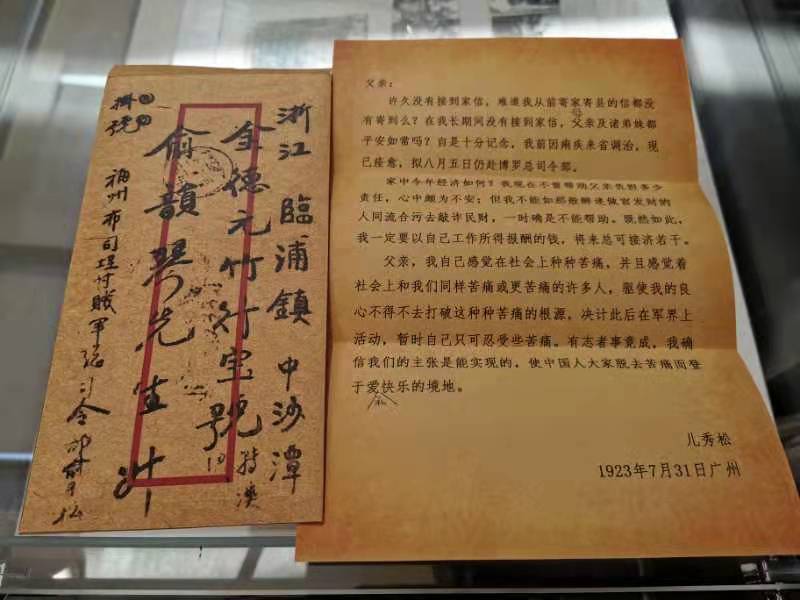 浙江 臨浦鎮 中沙潭
金德元竹行宝號
俞韻琴先生
掛號
福州布司埕討賊軍總司令部
父亲：
许久没有接到家信，难道我从前寄家寄县的信都没
有寄到么？在我长期间没有接到家信，父亲及诸弟妹都
母
平安如常吗？自是十分记念，我前因痢疾来省调治，现
已痊愈，拟八月五日仍赴博罗总司令部。
家中今年经济如何？我现在不曾帮助父亲负担多少
责任，心中颇为不安；但我不能如那般醉迷做官发财的
人同流合污去敲诈民财，一时确是不能帮助。既然如此，
我一定要以自己工作所得报酬的钱，将来总可接济若干。
父亲，我自己感觉在社会上种种苦痛，并且感觉着
社会上和我们同样苦痛或更苦痛的许多人，驱使我的良
心不得不去打破这种种苦痛的根源，决计此后在军界上
活动，暂时自己只可忍受些苦痛。有志者事竟成，我确
信我们的主张是能实现的，使中国人大家脱去苦痛而登
于爱快乐的境地。
儿秀松
1923年7月31日广州